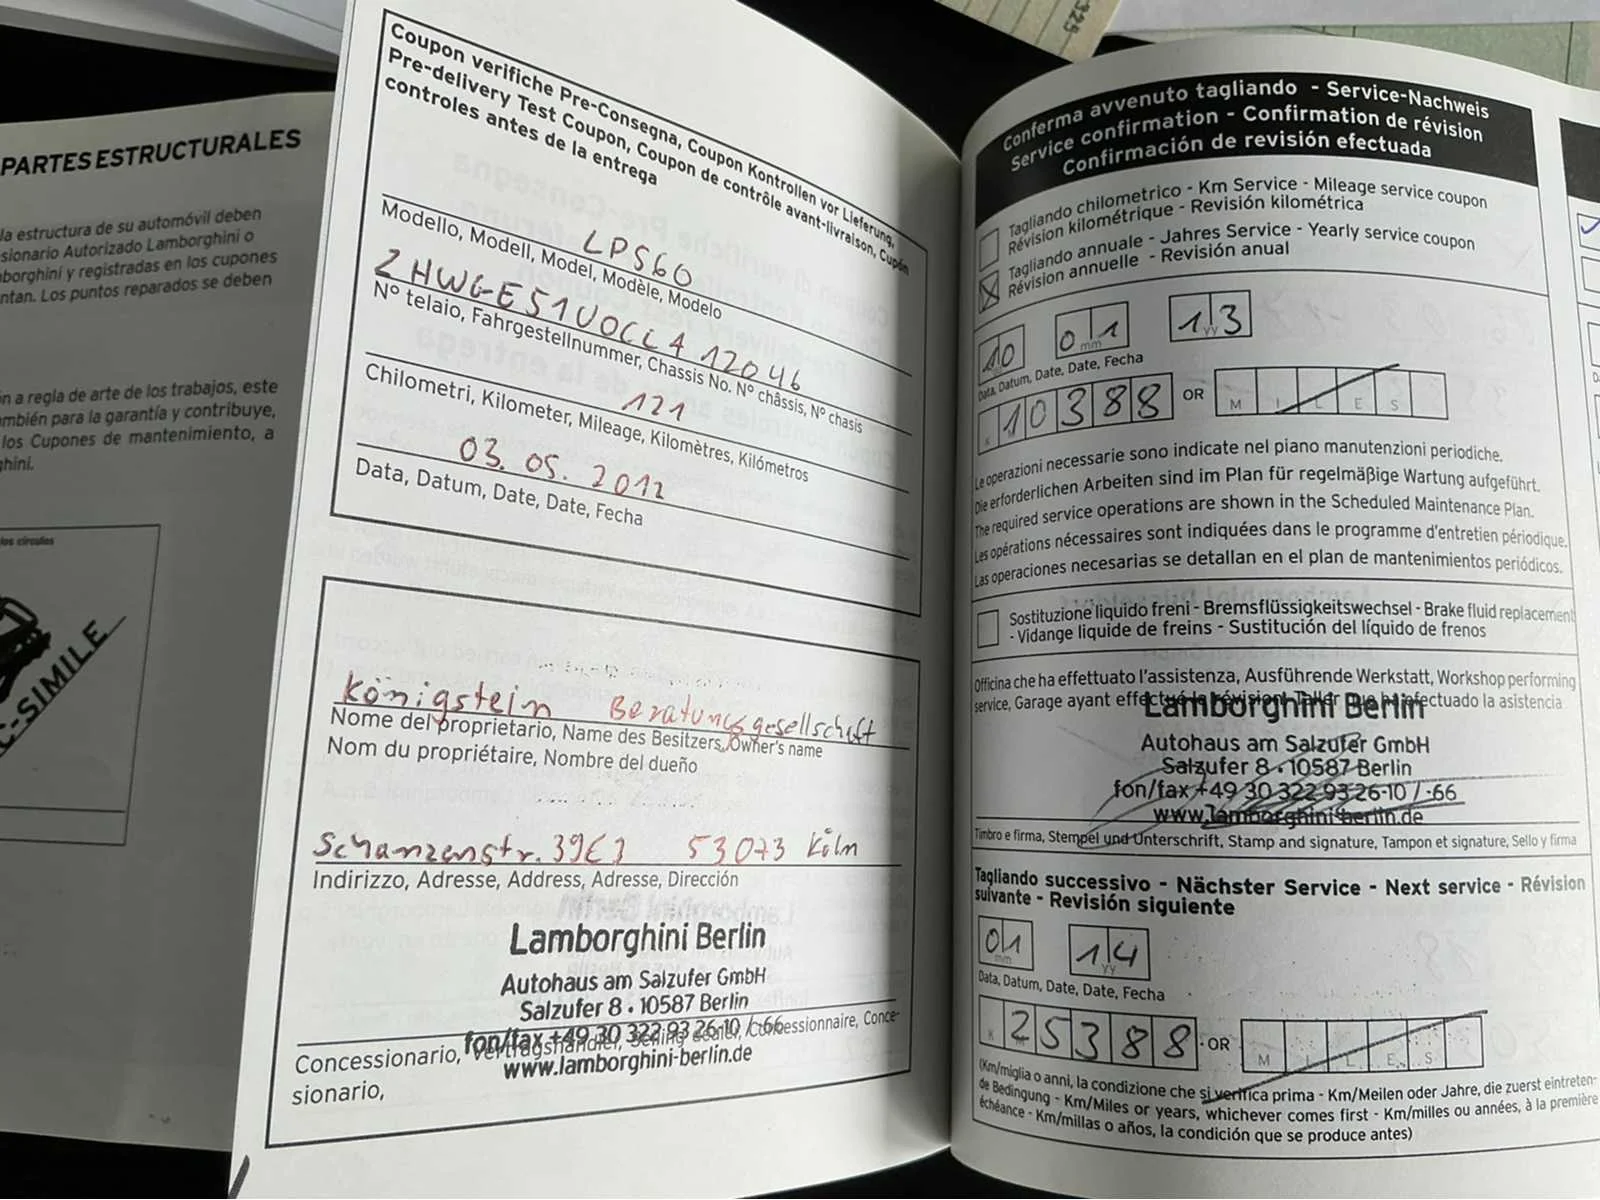 325
PARTES ESTRUCTURALES
la estructura de su automóvil deben
sionario Autorizado Lamborghini o
borghini y registradas en los cupones
ntan. Los puntos reparados se deben
n a regla de arte de los trabajos, este
mbién para la garantía y contribuye,
los Cupones de mantenimiento, a
hini.
los círculos
C-SIMILE
Coupon verifiche Pre-Consegna, Coupon Kontrollen vor Lieferung,
Pre-delivery Test Coupon, Coupon de contrôle avant-livraison, Cupón
controles antes de la entrega
LP560
Modello, Modell, Model, Modèle, Modelo
ZHWGE51U0CLA12046
N° telaio, Fahrgestellnummer, Chassis No. N° châssis, N° chasis
121
Chilometri, Kilometer, Mileage, Kilomètres, Kilómetros
03. 05. 2012
Data, Datum, Date, Date, Fecha
Königstein Beratungsgesellschaft
Nome del proprietario, Name des Besitzers, Owner's name
Nom du propriétaire, Nombre del dueño
Schanzenstr. 39 53073 Köln
Indirizzo, Adresse, Address, Adresse, Dirección
Lamborghini Berlin
Autohaus am Salzufer GmbH
Salzufer 8 · 10587 Berlin
fon/fax +49 30 322 93 26-10 / -66
Concessionario, Vertragshändler, Selling dealer, Concessionnaire, Conce-
www.lamborghini-berlin.de
sionario,
Conferma avvenuto tagliando - Service-Nachweis
Service confirmation - Confirmation de révision
Confirmación de revisión efectuada
Tagliando chilometrico - Km Service - Mileage service coupon
Révision kilométrique - Revisión kilométrica
Tagliando annuale - Jahres Service - Yearly service coupon
Révision annuelle - Revisión anual
10 01 13
mm yy
Data, Datum, Date, Date, Fecha
K 10388 OR M I L E S
Le operazioni necessarie sono indicate nel piano manutenzioni periodiche.
Die erforderlichen Arbeiten sind im Plan für regelmäßige Wartung aufgeführt.
The required service operations are shown in the Scheduled Maintenance Plan.
Les opérations nécessaires sont indiquées dans le programme d'entretien périodique.
Las operaciones necesarias se detallan en el plan de mantenimientos periódicos.
Sostituzione liquido freni - Bremsflüssigkeitswechsel - Brake fluid replacement
- Vidange liquide de freins - Sustitución del líquido de frenos
Officina che ha effettuato l'assistenza, Ausführende Werkstatt, Workshop performing
service, Garage ayant effectué la révision, Taller que ha efectuado la asistencia
Lamborghini Berlin
Autohaus am Salzufer GmbH
Salzufer 8 · 10587 Berlin
fon/fax +49 30 322 93 26-10 / -66
www.lamborghini-berlin.de
Timbro e firma, Stempel und Unterschrift, Stamp and signature, Tampon et signature, Sello y firma
Tagliando successivo - Nächster Service - Next service - Révision
suivante - Revisión siguiente
01 14
mm yy
Data, Datum, Date, Date, Fecha
K 25388 OR M I L E S
(Km/miglia o anni, la condizione che si verifica prima - Km/Meilen oder Jahre, die zuerst eintreten-
de Bedingung - Km/Miles or years, whichever comes first - Km/milles ou années, à la première
échéance - Km/millas o años, la condición que se produce antes)